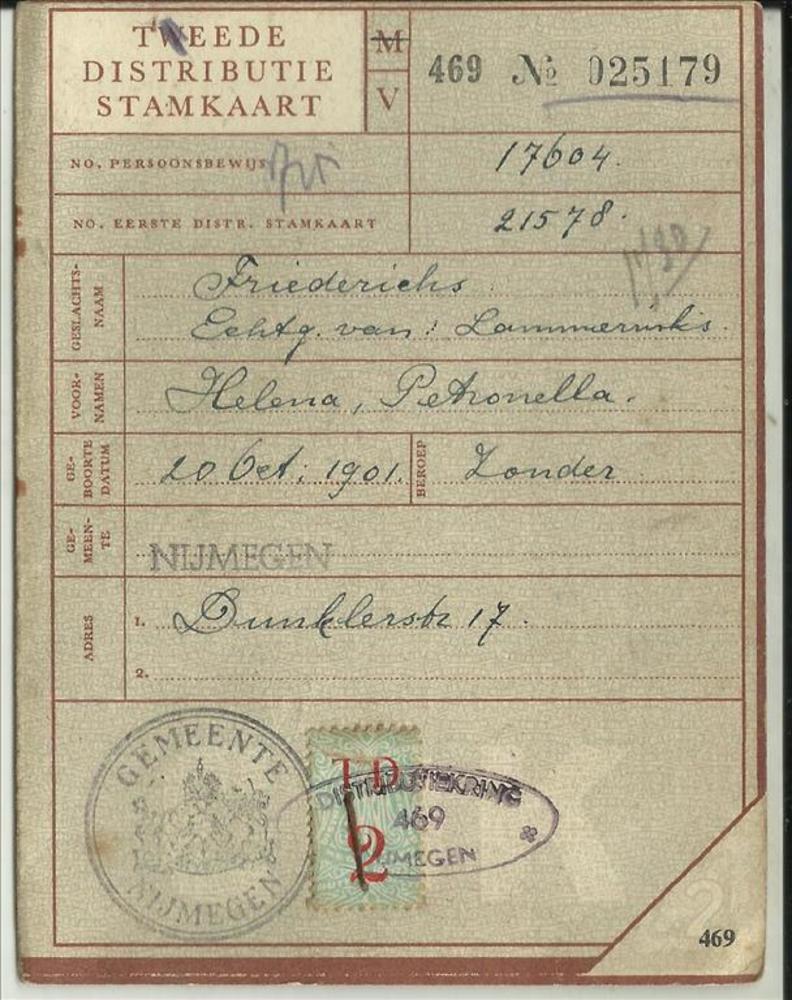 TWEEDE
DISTRIBUTIE
STAMKAART
M
V
469 № 025179
NO. PERSOONSBEWIJS
17604.
NO. EERSTE DISTR. STAMKAART
21578.
GESLACHTS-
NAAM
Friederichs
Echtg. van:
VOOR-
NAMEN
Helena, Petronella.
GE-
BOORTE
DATUM
20 Oct: 1901.
BEROEP
Zonder
GE-
MEEN-
TE
NIJMEGEN
ADRES
1. Dunklerstr 17.
2.
GEMEENTE
NIJMEGEN
TD
2
DISTRIBUTIEKRING
469
NIJMEGEN
K
2
469